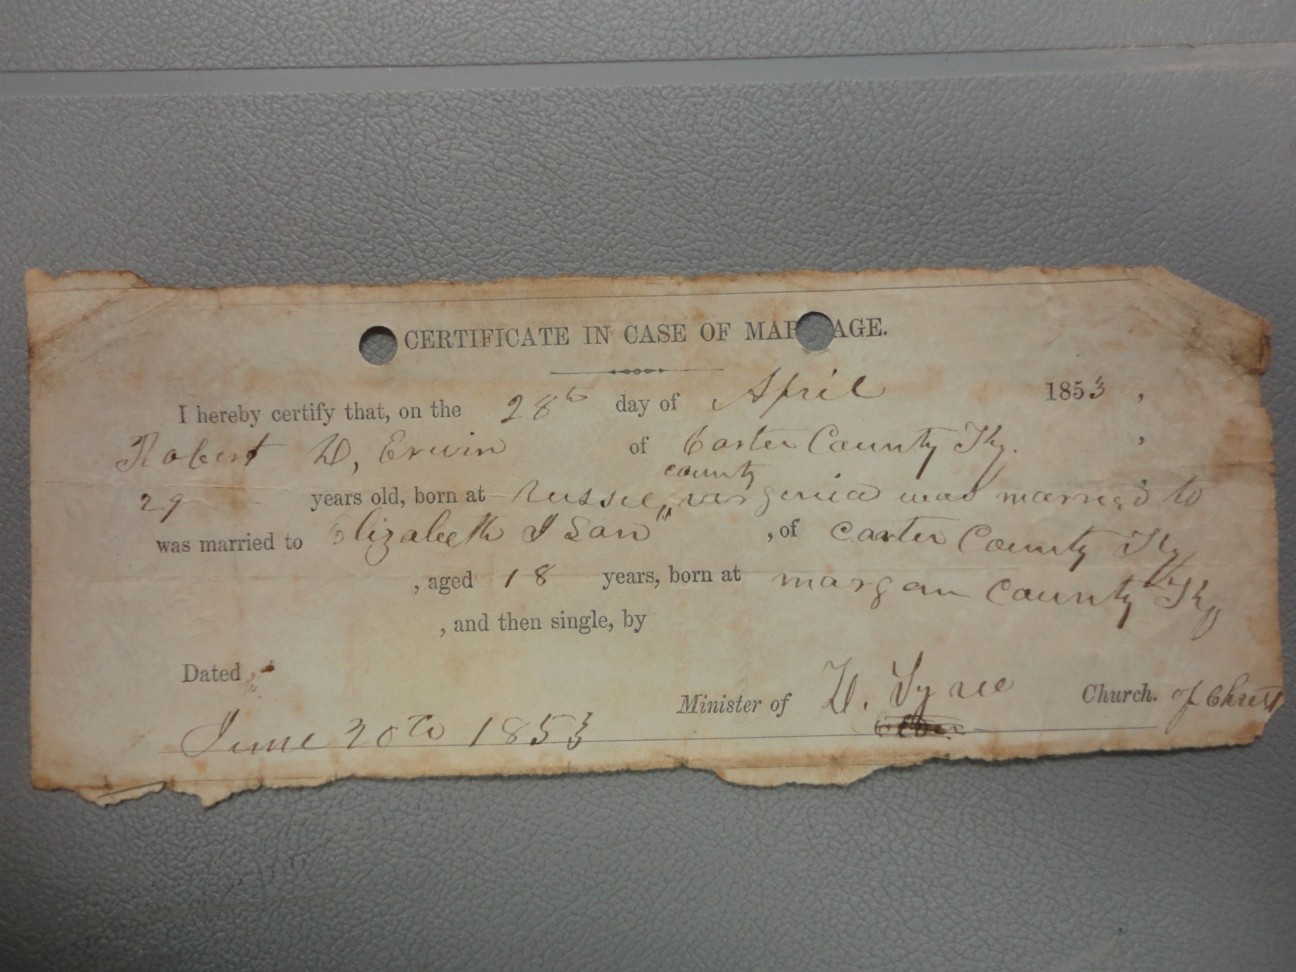 CERTIFICATE IN CASE OF MAR AGE.
I hereby certify that, on the 28th day of April 1853 ,
Robert D, Erwin of Carter County Ky. ,
county
29 years old, born at Russel, virginia was married to
was married to Elizabeth Ison , of carter County Ky
, aged 18 years, born at margan county Ky
, and then single, by
Dated
Minister of D. Tyree Church. of Christ
June 20th 1853